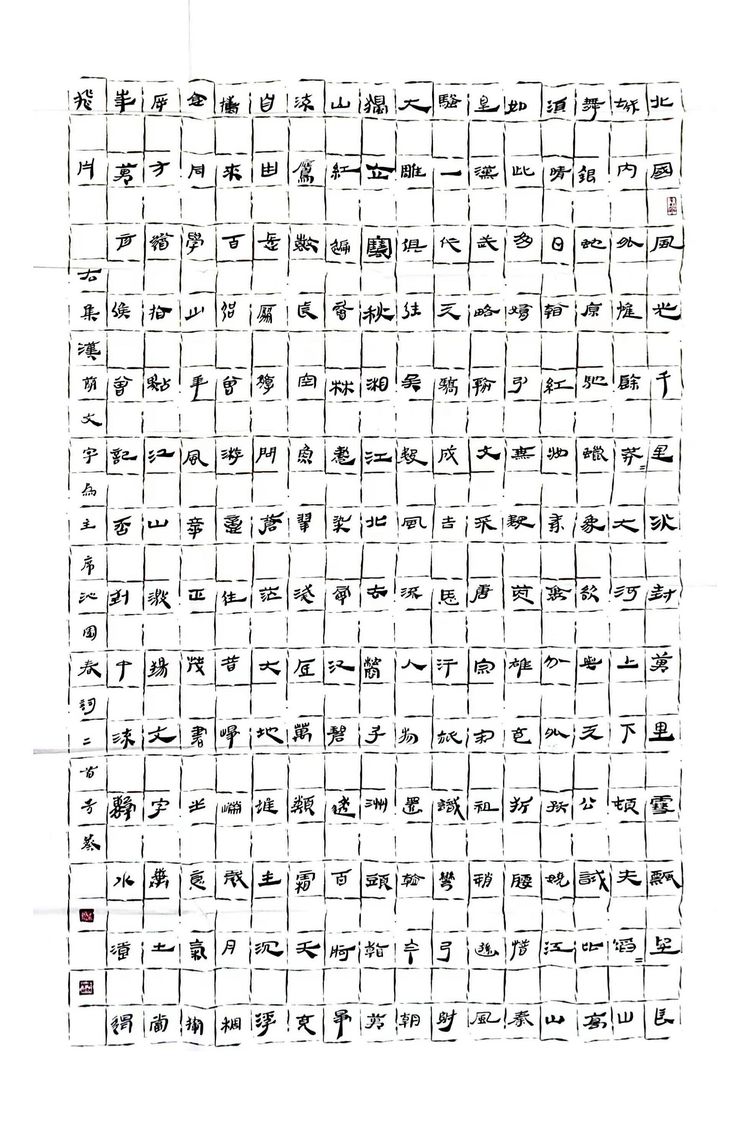 北國風光千里冰封萬里雪飄望長
城内外惟餘莽=大河上下頓失滔=山
舞銀蛇原馳蠟象欲與天公試比高
須晴日看紅妝素裹分外妖嬈江山
如此多嬌引無數英雄競折腰惜秦
皇漢武略輸文采唐宗宋祖稍遜風
騷一代天驕成吉思汗祇識彎弓射
大雕俱往矣數風流人物還看今朝
獨立寒秋湘江北去橘子洲頭看萬
山紅遍層林盡染漫江碧透百舸爭
流鷹擊長空魚翔淺底萬類霜天競
自由悵寥廓問蒼茫大地誰主沉浮
攜來百侶曾游憶往昔崢嶸歲月稠
恰同學少年風華正茂書生意氣揮
斥方遒指點江山激揚文字糞土當
年萬户侯曾記否到中流擊水浪遏
飛舟
右集漢簡文字為主席沁園春詞二首